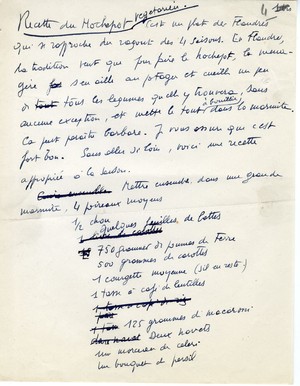 Recette du Hochepot végétarien. C'est un plat de Flandres
4
qui s'approche du ragout des 4 saisons. En Flandre,
la tradition veut que pour faire le hochepot, la ména-
gère s'en aille au potager et cueille un peu
de tous les légumes qu'elle y trouvera, sans
aucune exception, et mette le tout à bouillir dans la marmite.
Ça peut paraître barbare. Je vous assure que c'est
fort bon. Sans aller si loin, voici une recette
appropriée à la saison.
Mettre ensemble, dans une grande
marmite, 4 poireaux moyens
1/2 chou
quelques feuilles de bettes
750 grammes de pommes de terre
500 grammes de carottes
1 courgette moyenne (s'il en reste)
1 tasse à café de lentilles
125 grammes de macaroni
Deux navets
un morceau de céleri
un bouquet de persil